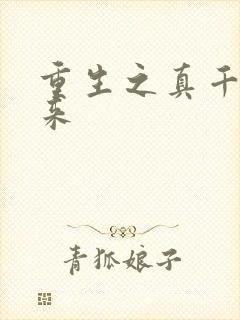 重生之真千
来
青狐娘子